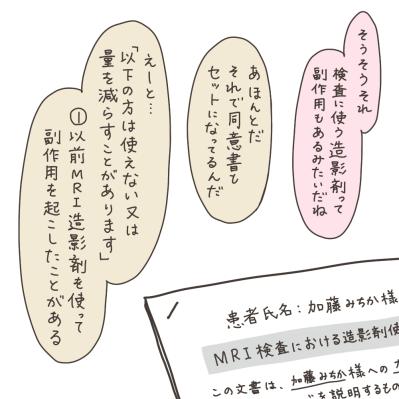 そうそうそれ
検査に使う造影剤って
副作用もあるみたいだね
あほんとだ
それで同意書も
セットになってるんだ
えーと…
「以下の方は使えない又は
量を減らすことがあります」
①以前MRI造影剤を使って
副作用を起こしたことがある
患者氏名：加藤みちか様
MRI検査における造影剤使
この文書は、加藤みちか様への
を説明するもの